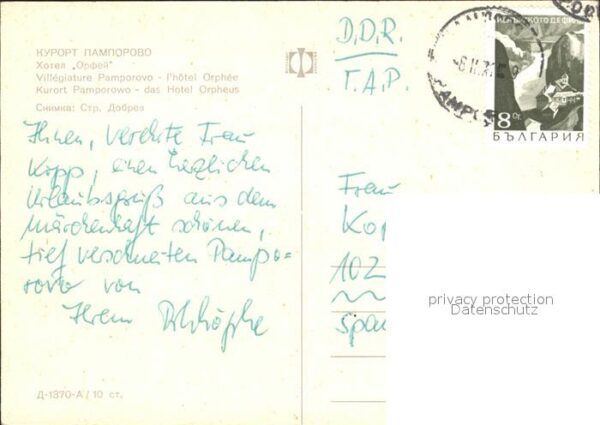 КУРОРТ ПАМПОРОВО
Хотел „Орфей"
Villégiature Pamporovo - l'hôtel Orphée
Kurort Pamporowo - das Hotel Orpheus
Снимка: Стр. Добрев
Ihnen, verehrte Frau
Kopp, einen herzlichen
Urlaubsgruß aus dem
märchenhaft schönen,
tief verschneiten Pampo-
rovo von
Ihrem
Д-1370-А / 10 ст.
D.D.R.
Г.А.Р.
8 Ст.
БЪЛГАРИЯ
Frau
Kop
102
privacy protection
Datenschutz